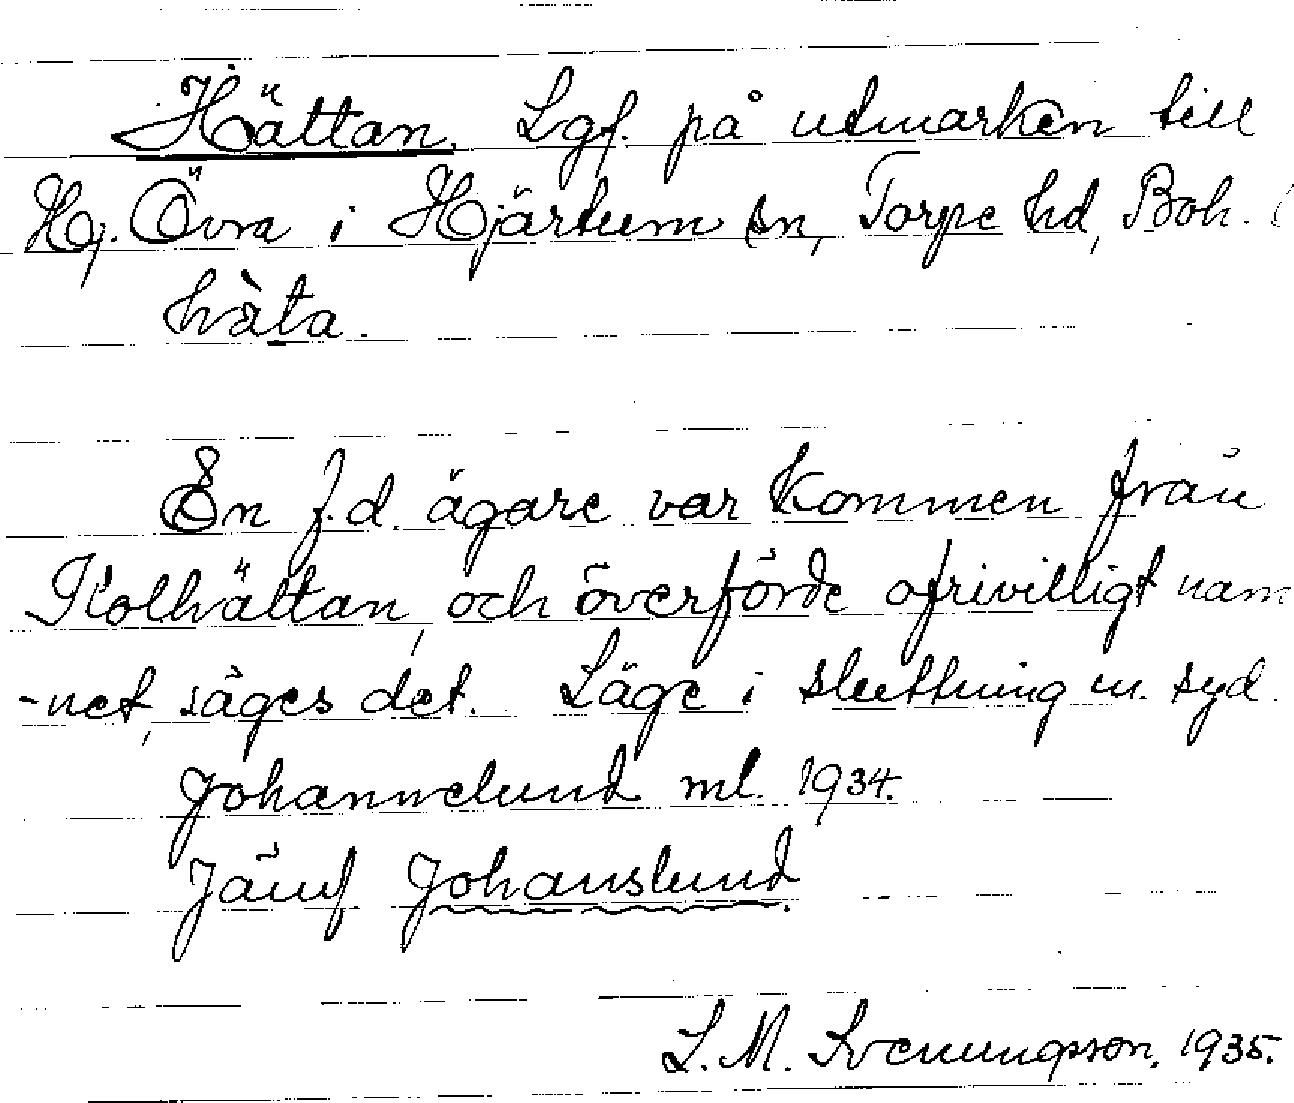 Hättan. Lgf. på utmarken till
Hj. Övra i Hjärtum sn, Torpe hd, Boh.
hàta.
En f.d. ägare var kommen från
Kolhättan, och överförde ofrivilligt nam
-net, säges det. Läge i sluttning m. syd.
Johannelund ml. 1934.
Jämf Johanslund.
L. M. Svenungsson. 1935.